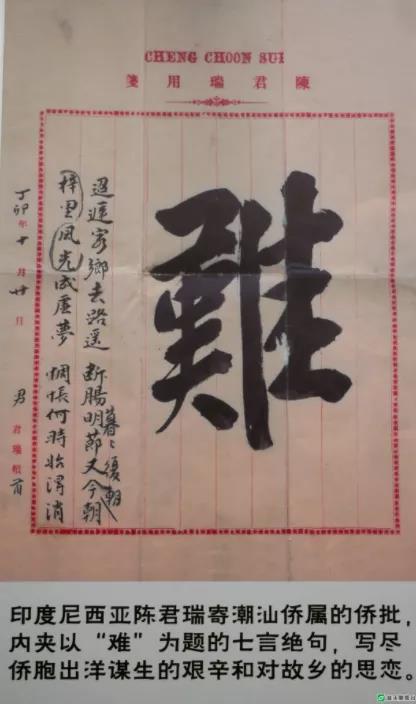 CHENG CHOON SUI
陳君瑞用箋
難
迢遞家鄉去路遥 断腸明節又今朝
暮々復朝
梓里風光成虚夢 惆悵何時始得消
丁卯年十月廿日 男 君瑞頓首
印度尼西亚陈君瑞寄潮汕侨属的侨批，
内夹以“难”为题的七言绝句，写尽
侨胞出洋谋生的艰辛和对故乡的思恋。